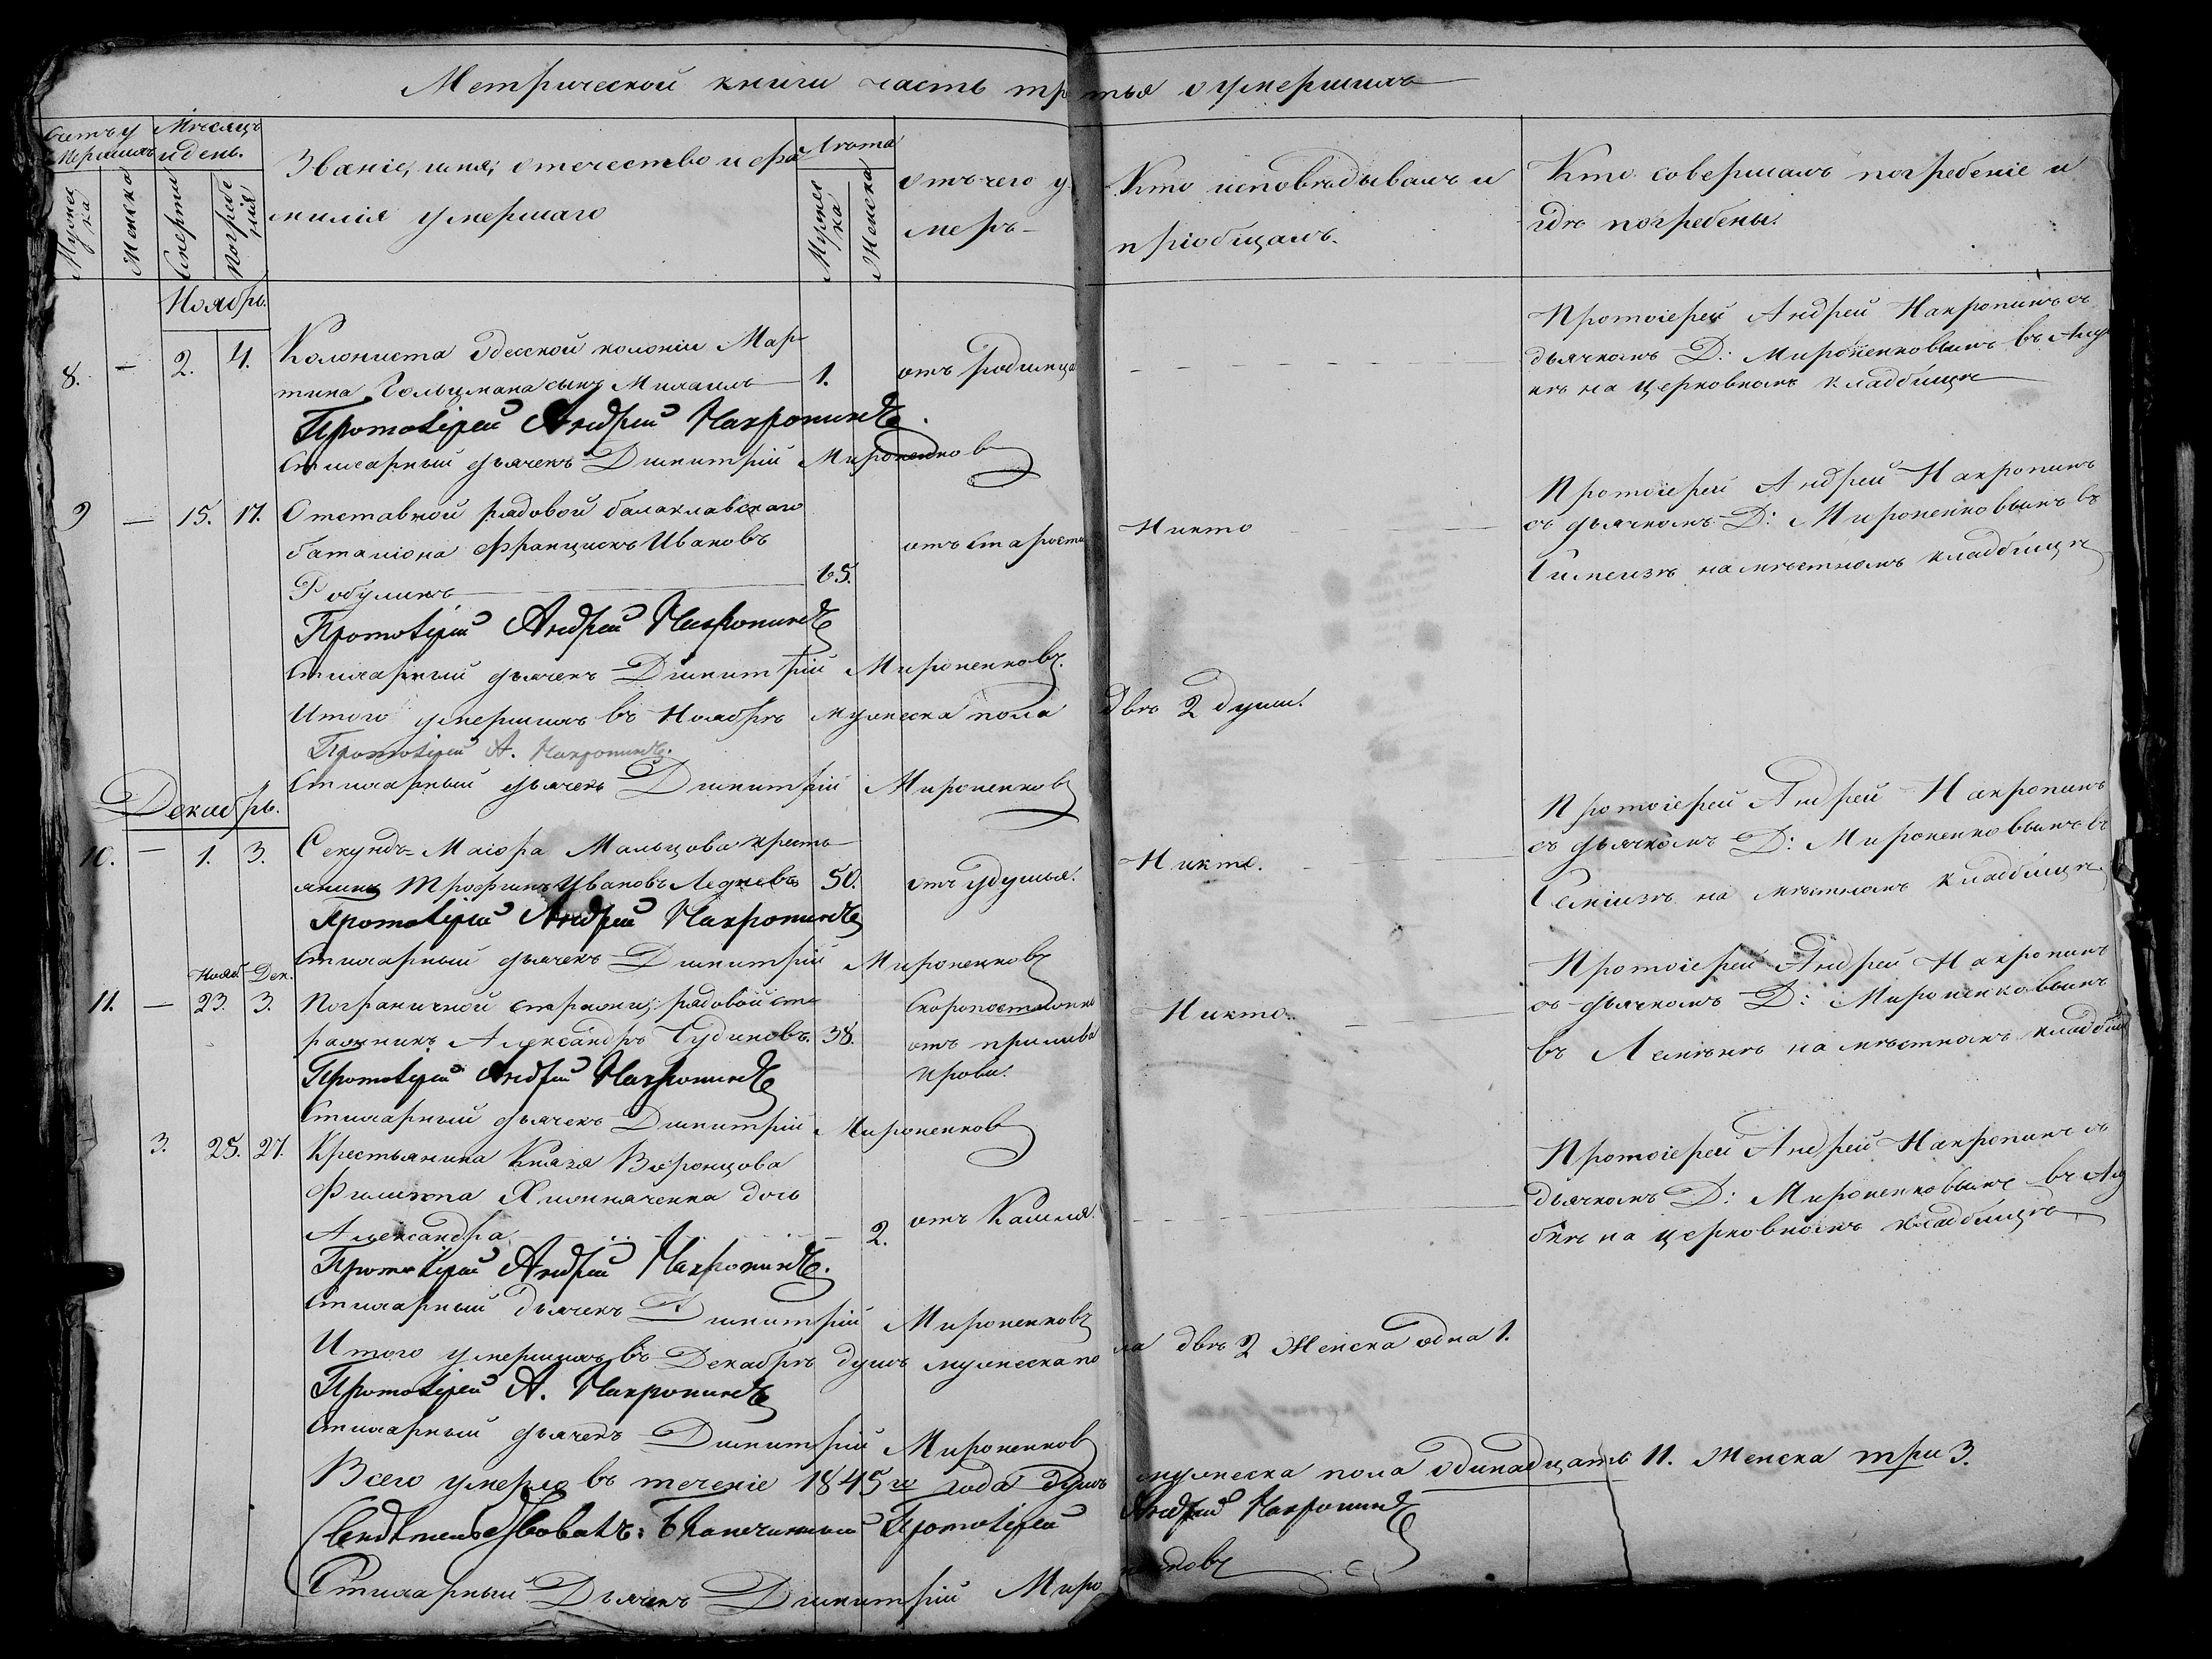 Метрической книги часть третья о умершихъ
Счетъ у
мершихъ
Мѣсяцъ
и день.
Мужес
ка
Женска
Смерти
Погребе
нія
Званіе, имя, отечество и фа
милія умершаго
Лѣта
Мужес
ка
Женска
отъ чего у
меръ
Кто исповѣдывалъ и
пріобщалъ.
Кто совершалъ погребеніе и
гдѣ погребены.
Ноябрь.
8. — 2. 4. Колониста Одесской колоніи Мар
тина Гольцмана сынъ Михаилъ 1. отъ родимца
Протоіерей Андрей Накропинъ съ
дьячкомъ Д: Мироненковымъ въ Алу
кѣ на церковномъ кладбищѣ
Протоіерей Андрей Накропинъ.
Стихарный дьячекъ Димитрій Мироненков
9 — 15. 17. Отставной рядовой балаклавскаго
баталіона Францискъ Ивановъ
Робулинъ 65.
отъ старости
Никто
Протоіерей Андрей Накропинъ
съ дьячкомъ Д: Мироненковымъ въ
Симеизѣ на мѣстномъ кладбищѣ
Протоіерей Андрей Накропинъ
Стихарный дьячекъ Димитрій Мироненковъ.
Итого умершихъ въ Ноябрѣ мужеска пола двѣ 2 души.
Протоіерей А. Накропинъ.
Стихарный дьячекъ Димитрій Мироненковъ
Декабрь.
10. — 1. 3. Секундъ-Маіора Мальцова кресть
янинъ Трофимъ Ивановъ Ледневъ 50. отъ удушья.
Никто.
Протоіерей Андрей Накропинъ
съ дьячкомъ Д: Мироненковымъ въ
Семіизѣ на мѣстномъ кладбищѣ
Протоіерей Андрей Накропинъ
Стихарный дьячекъ Димитрій Мироненковъ
Нояб. Дек.
11. — 23. 3. Пограничной стражи, рядовой ст
ражникъ Александръ Чудиновъ. 38.
Скоропостижно
отъ прилива
крови.
Никто.
Протоіерей Андрей Накропинъ
съ дьячкомъ Д: Мироненковымъ
въ Лименѣ на мѣстномъ кладбищ
Протоіерей Андрей Накропинъ
Стихарный дьячекъ Димитрій Мироненков
3. 25. 27. Крестьянина Князя Воронцова
Филиппа дочь
Александра 2. отъ Кашля.
Протоіерей Андрей Накропинъ съ
дьячкомъ Д: Мироненковымъ въ Алу
бкѣ на церковномъ кладбищѣ
Протоіерей Андрей Накропинъ.
Стихарный дьячекъ Димитрій Мироненковъ
Итого умершихъ въ Декабрѣ душъ мужеска пола двѣ 2 Женска одна 1.
Протоіерей А. Накропинъ
Стихарный дьячекъ Димитрій Мироненковъ
Всего умерло въ теченіе 1845 го года душъ мужеска пола одинадцать 11. Женска три 3.
Свидѣтельствовалъ: Благочинный Протоіерей Андрей Накропинъ
Стихарный Дьячекъ Димитрій Мироненковъ